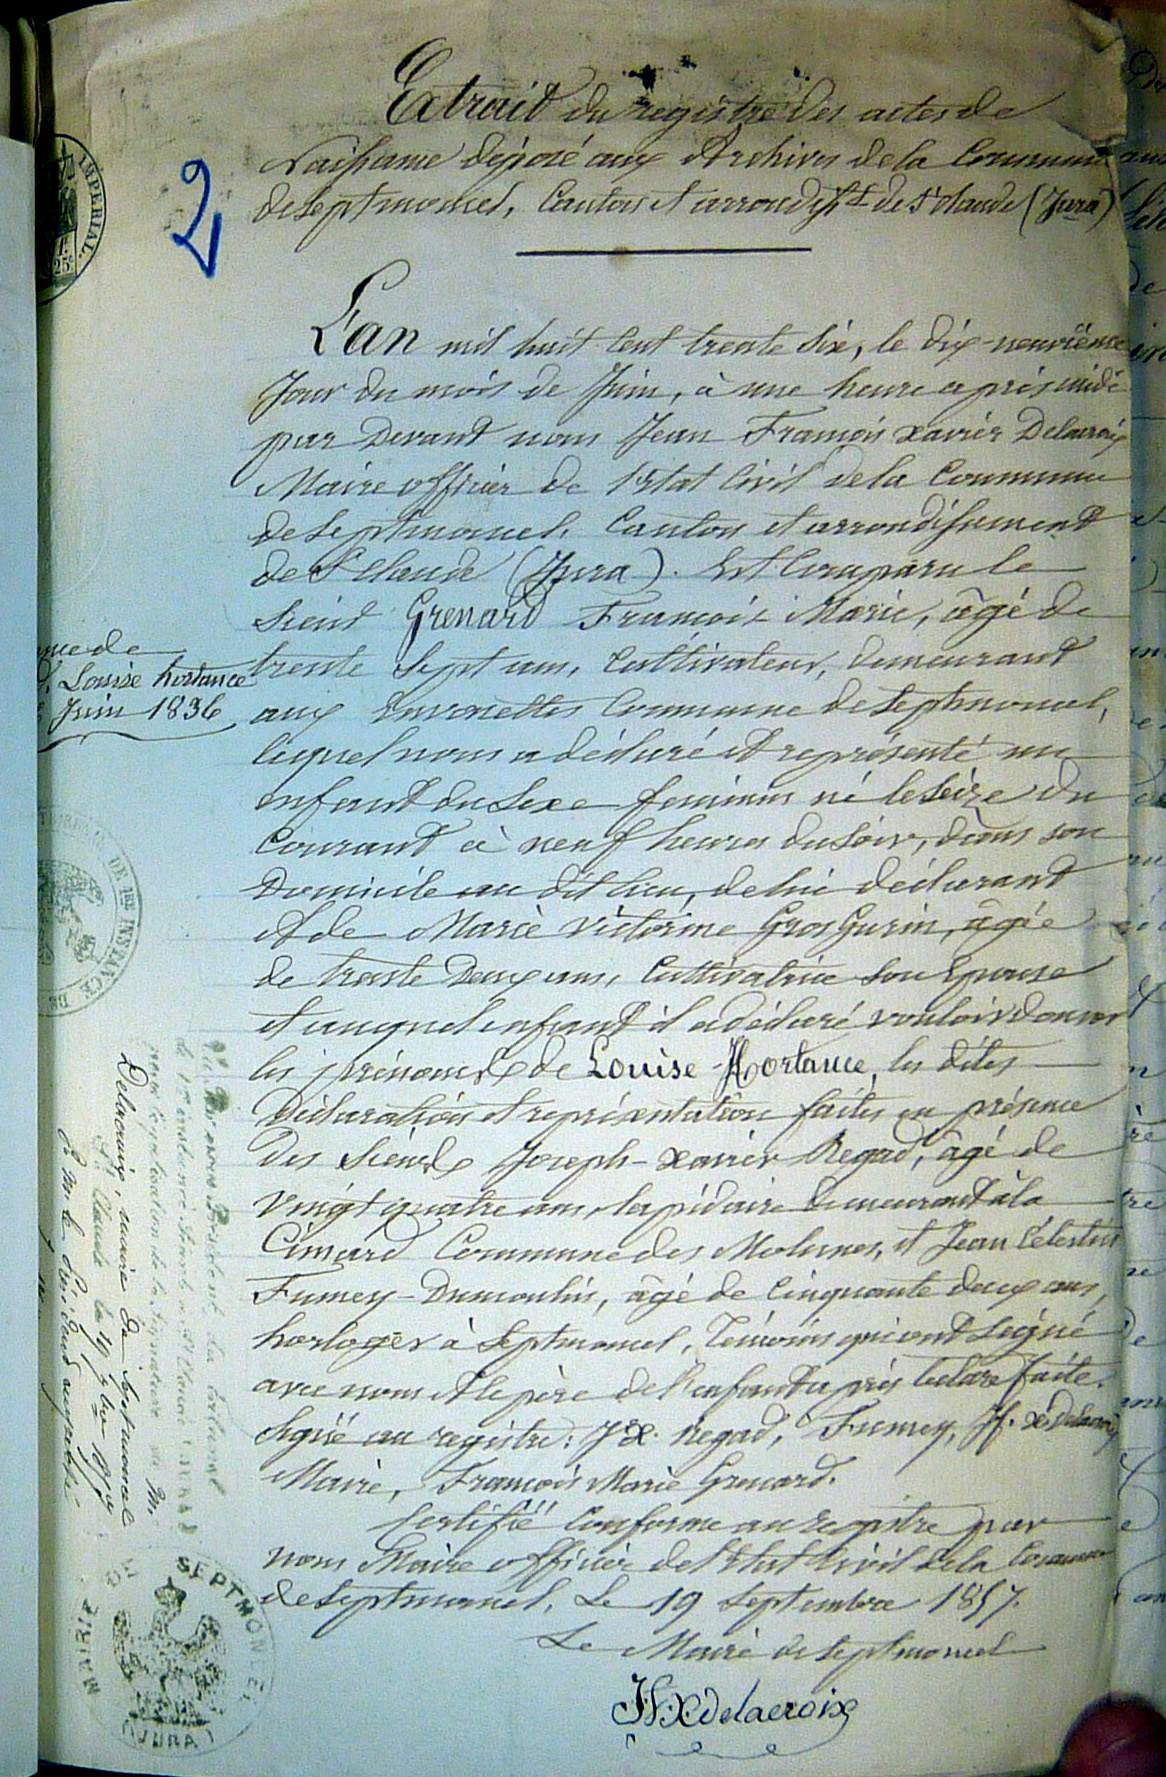 Extrait du registre des actes de
Naissance déposé aux Archives de la Commune
de Septmoncel, Canton et arrondisst de St Claude (Jura)
2
IMPERIAL
25c
L'an mil huit cent trente six, le dix-neuvième
Jour du mois de Juin, à une heure après midi
par Devant nous Jean François Xavier Delacroix
Maire officier de l'Etat Civil de la Commune
de Septmoncel, Canton et arrondissement
de St Claude (Jura). Est Comparu le
Sieur Grenard François Marie, âgé de
trente Sept ans, Cultivateur, Demeurant
aux Commune de Septmoncel,
lequel nous a déclaré et représenté un
enfant du Sexe feminin né le Seize du
Courant à neuf heures du Soir, dans son
Domicile au dit lieu, de lui déclarant
et de Marie Victorine Gros Gurin, âgée
de trente Deux ans, Cultivatrice Son Epouse
et auquel enfant il a déclaré vouloir donner
les prénoms de Louise Hortance, les dites
Déclaration et représentation faites en présence
Des Sieurs Joseph-Xavier Regad, âgé de
Vingt quatre ans, lapidaire Demeurant à la
Commune des Molunes, et Jean Célestin
Fumey-Dumoulin, âgé de Cinquante deux ans,
horloger à Septmoncel, Témoins qui ont Signé
avec nous et le père de l'enfant après lecture faite.
Signé au registre: J X Regad, Fumey, J f. X Delacroix
Maire, François Marie Grenard.
Certifié Conforme au registre par
nous Maire officier de l'Etat Civil de la Commune
de Septmoncel, Le 19 Septembre 1857.
Le Maire de Septmoncel
JFXdelacroix
Louise hortance
Juin 1836
DE 1re INSTANCE DE
Delacroix, maire de Septmoncel
St Claude
MAIRIE DE SEPTMONCEL
(JURA)